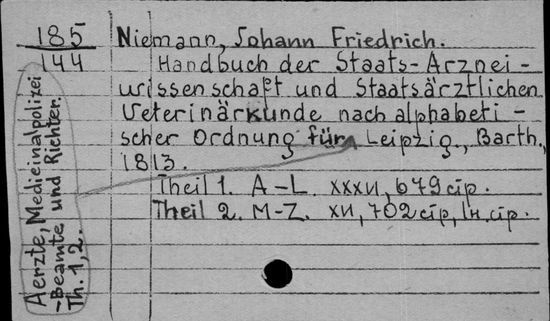 185
144
Niemann, Johann Friedrich.
Handbuch der Staats-Arznei-
wissenschaft und Staatsärztlichen
Veterinärkunde nach alphabeti-
scher Ordnung für Leipzig., Barth.,
1813.
Theil 1. A-L. XXXVI, 679 стр.
Theil 2. M-Z. XVI, 702 стр, 1н. стр.
Aerzte, Medicinalpolizei
-Beamte und Richter.
Th. 1, 2.